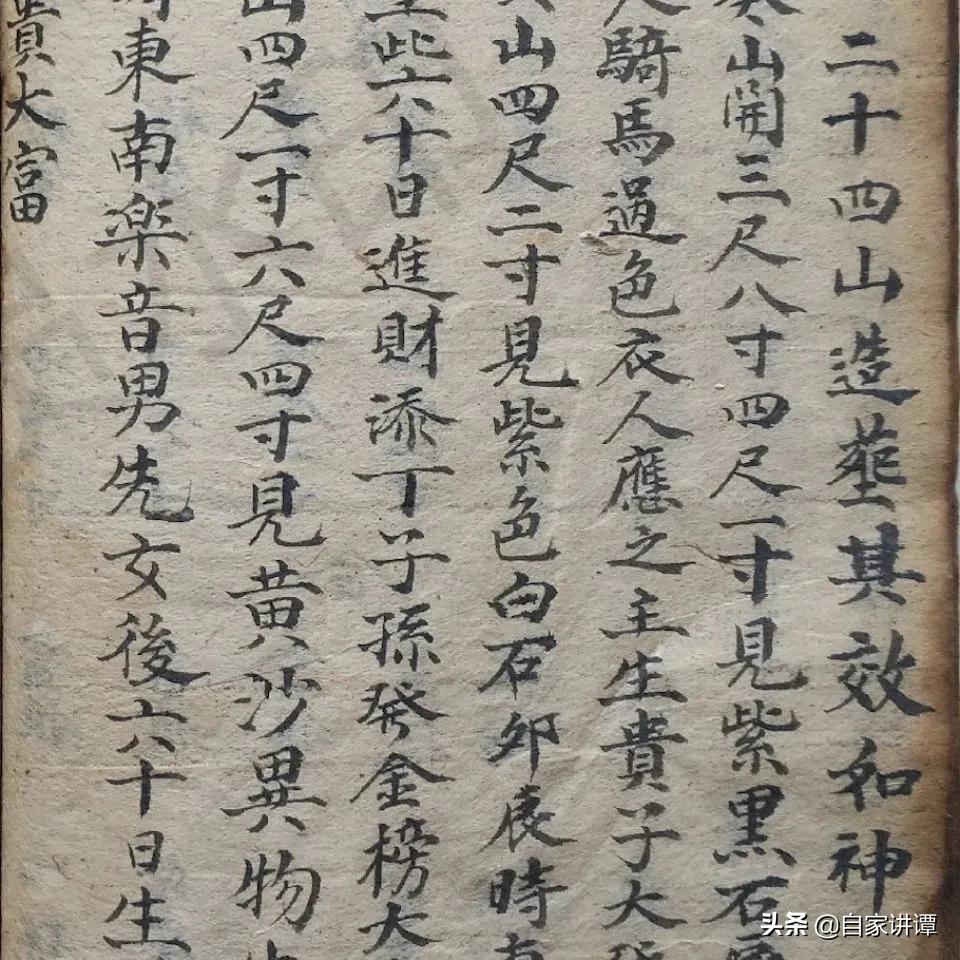 二十四山造墓其效如神
山開三尺八寸四尺一寸見紫黑石
騎馬過色衣人應之主生貴子大
山四尺二寸見紫色白石卯辰時
些六十日進財添丁子孫發金榜大
山四尺一寸六尺四寸見黄沙異物
東南楽音男先女後六十日生
貴大富
头条 @自家讲谭